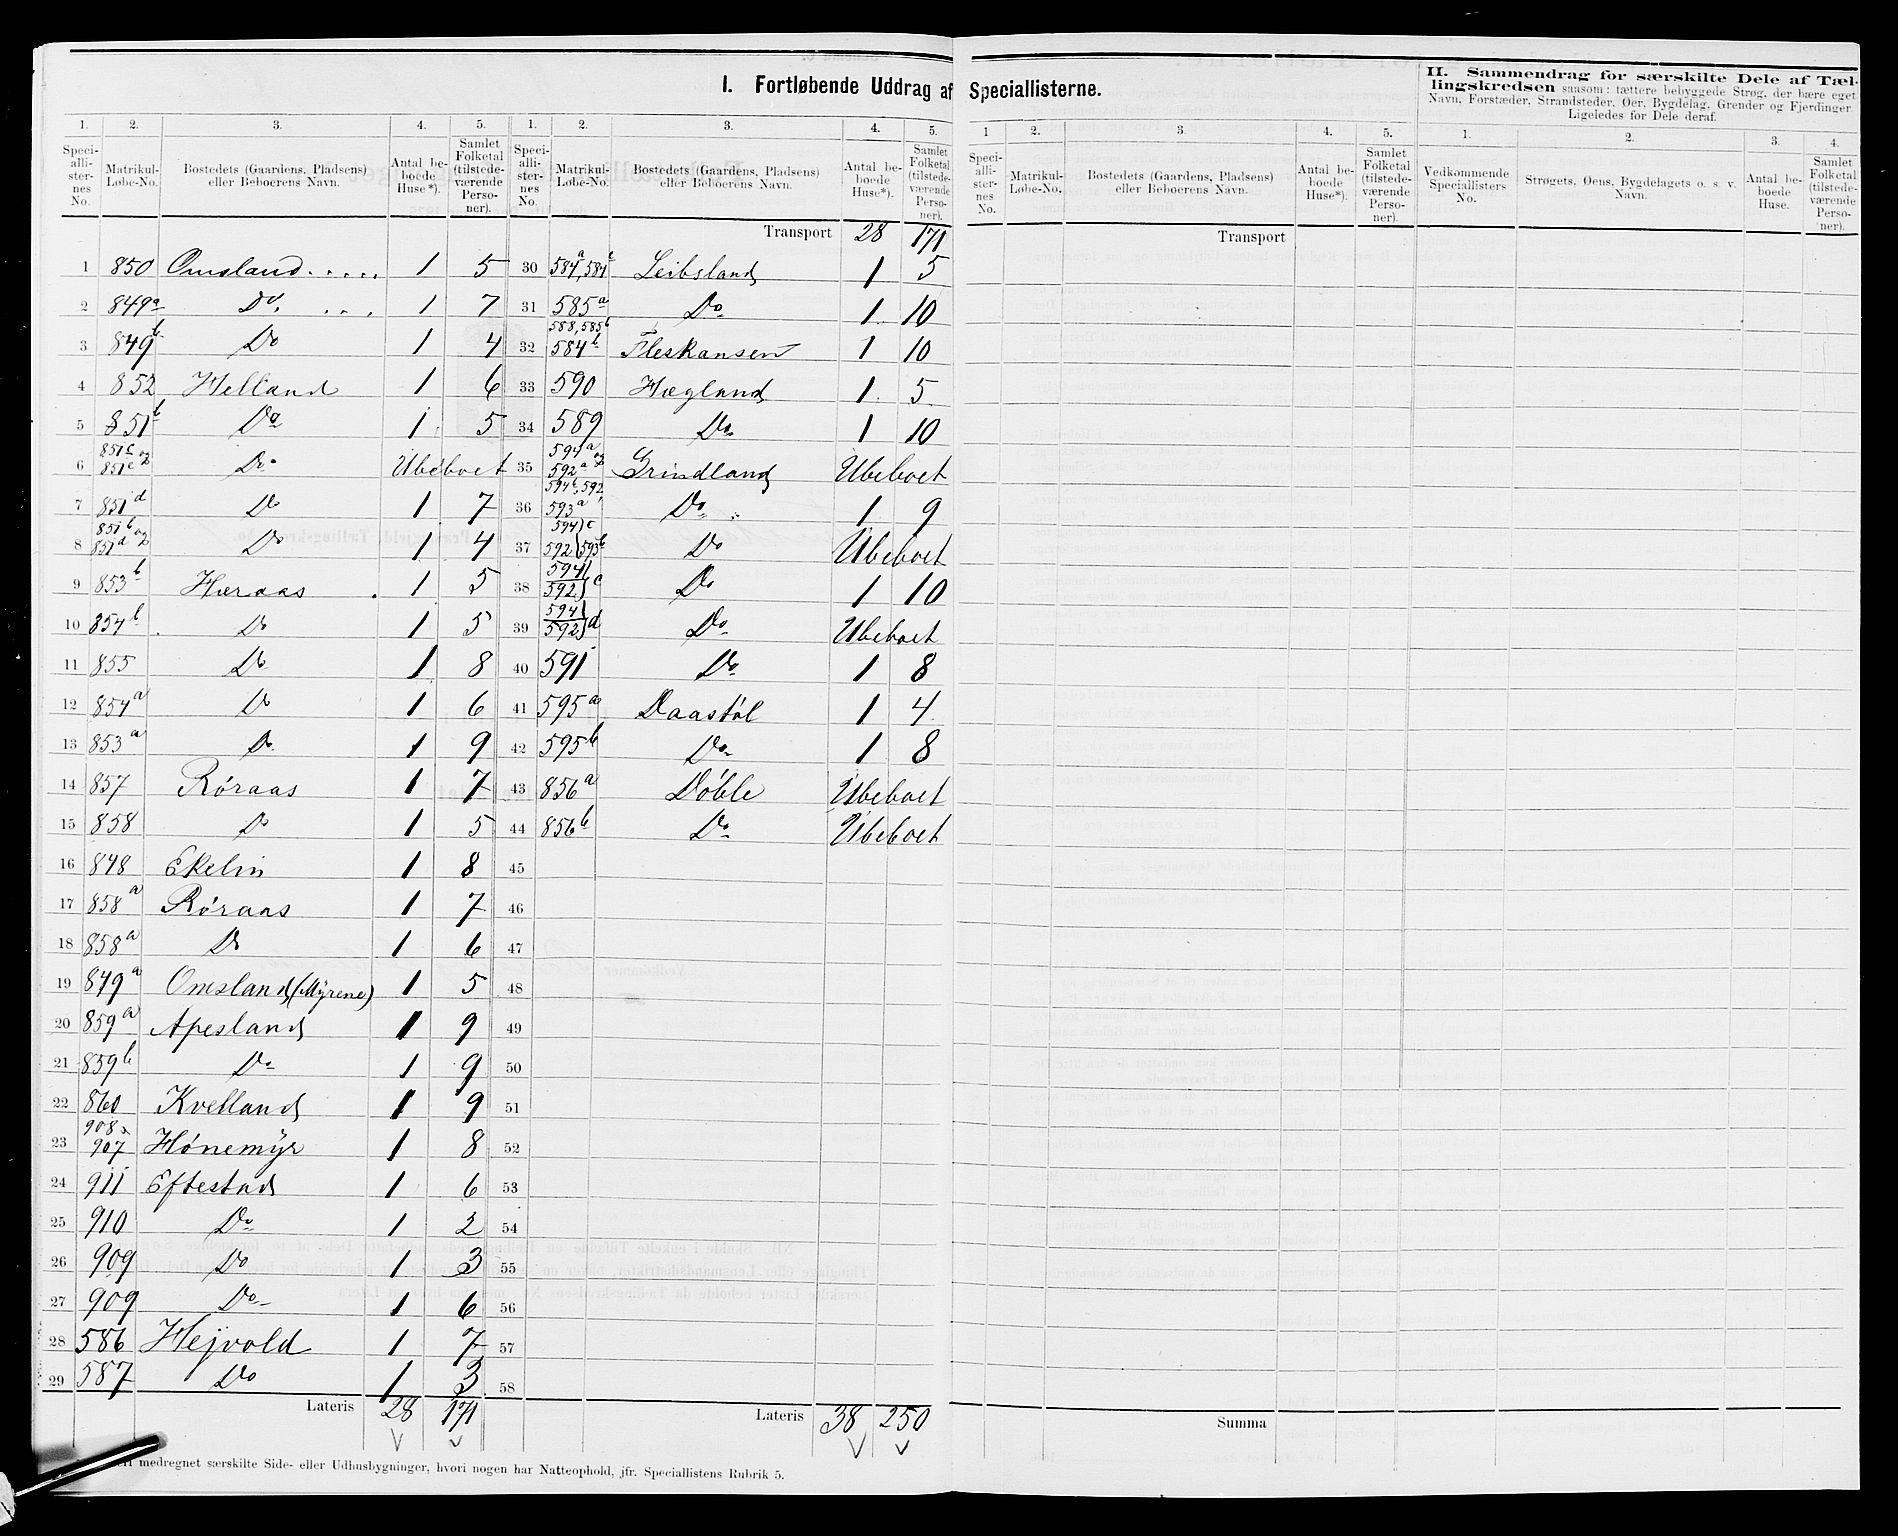 I. Fortløbende Uddrag af Speciallisterne.
II. Sammendrag for særskilte Dele af Tællingskredsen saasom: tættere bebyggede Strøg, der bære eget
Navn, Forstæder, Strandsteder, Øer, Bygdelag, Grender og Fjerdinger
Ligeledes for Dele deraf.
1. 2. 3. 4. 5. 1. 2. 3. 4. 5.
Speciallisternes No. Matrikul-Løbe-No. Bostedets (Gaardens, Pladsens) eller Beboerens Navn. Antal beboede Huse*). Samlet Folketal (tilstedeværende Personer).
Speciallisternes No. Matrikul-Løbe-No. Bostedets (Gaardens, Pladsens) eller Beboerens Navn. Antal beboede Huse*). Samlet Folketal (tilstedeværende Personer).
1 850 Omsland..... 1 5
2 849a Do. ... 1 7
3 849b Do 1 4
4 852 Helland 1 6
5 851b Do 1 5
6 851c og 851e Do. Ubeboet
7 851d Do 1 7
8 851b og 851d Do 1 4
9 853b Høraas 1 5
10 854b Do 1 5
11 855 Do 1 8
12 854a Do 1 6
13 853a Do 1 9
14 857 Røraas 1 7
15 858 Do 1 5
16 848 Ekelin 1 8
17 858a Røraas 1 7
18 858a Do 1 6
19 849a Omsland (Myrene) 1 5
20 859a Apesland 1 9
21 859b Do 1 9
22 860 Kvelland 1 9
23 908 & 907 Hønemyr 1 8
24 911 Eftestad 1 6
25 910 Do 1 2
26 909 Do 1 3
27 909 Do 1 6
28 586 Hejvold 1 7
29 587 Do 1 3
Lateris 28 171
Transport 28 171
30 584a, 584c Leibsland 1 5
31 585a Do 1 10
32 588, 585b 584b Fleskansen 1 10
33 590 Hægland 1 5
34 589 Do 1 10
35 594a og 592a Grindland Ubeboet
36 594b, 592 593a Do 1 9
37 594c 592 593b Do Ubeboet
38 594 592 c Do 1 10
39 594 592 d Do Ubeboet
40 591 Do 1 8
41 595a Daastøl 1 4
42 595b Do 1 8
43 856a Døble Ubeboet
44 856b Do Ubeboet
45
46
47
48
49
50
51
52
53
54
55
56
57
58
Lateris 38 250
1 2. 3. 4. 5. 1. 2. 3. 4.
Speciallisternes No. Matrikul-Løbe-No. Bostedets (Gaardens, Pladsens) eller Beboerens Navn. Antal beboede Huse*). Samlet Folketal (tilstedeværende Personer).
Vedkommende Speciallisters No. Strøgets, Øens, Bygdelagets o. s. v. Navn. Antal beboede Huse. Samlet Folketal (tilstedeværende Personer).
Transport
Summa
medregnet særskilte Side- eller Udhusbygninger, hvori nogen har Natteophold, jfr. Speciallistens Rubrik 5.